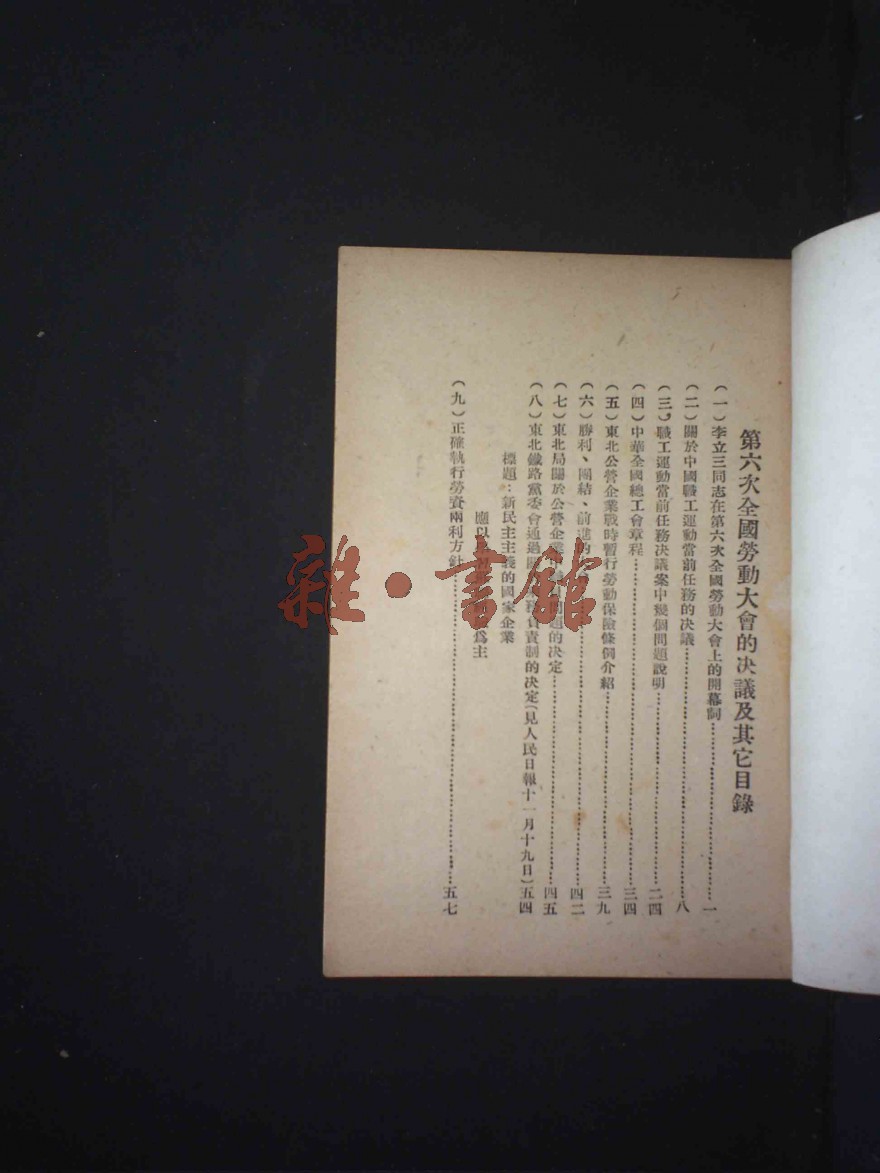 第六次全國勞動大會的决議及其它目錄
（一）李立三同志在第六次全國勞動大會上的開幕詞……一
（二）關於中國職工運動當前任務的决議……八
（三）職工運動當前任務决議案中幾個問題說明……二四
（四）中華全國總工會章程……三四
（五）東北公營企業戰時暫行勞動保險條例介紹……三九
（六）勝利、團結、前進的……四二
（七）東北局關於公營企業中問題的决定……四五
（八）東北鐵路黨委會通過負責制的决定（見人民日報十一月十九日）五四
標題：新民主主義的國家企業
應以為主
（九）正確執行勞資兩利方針……五七
雜·書館